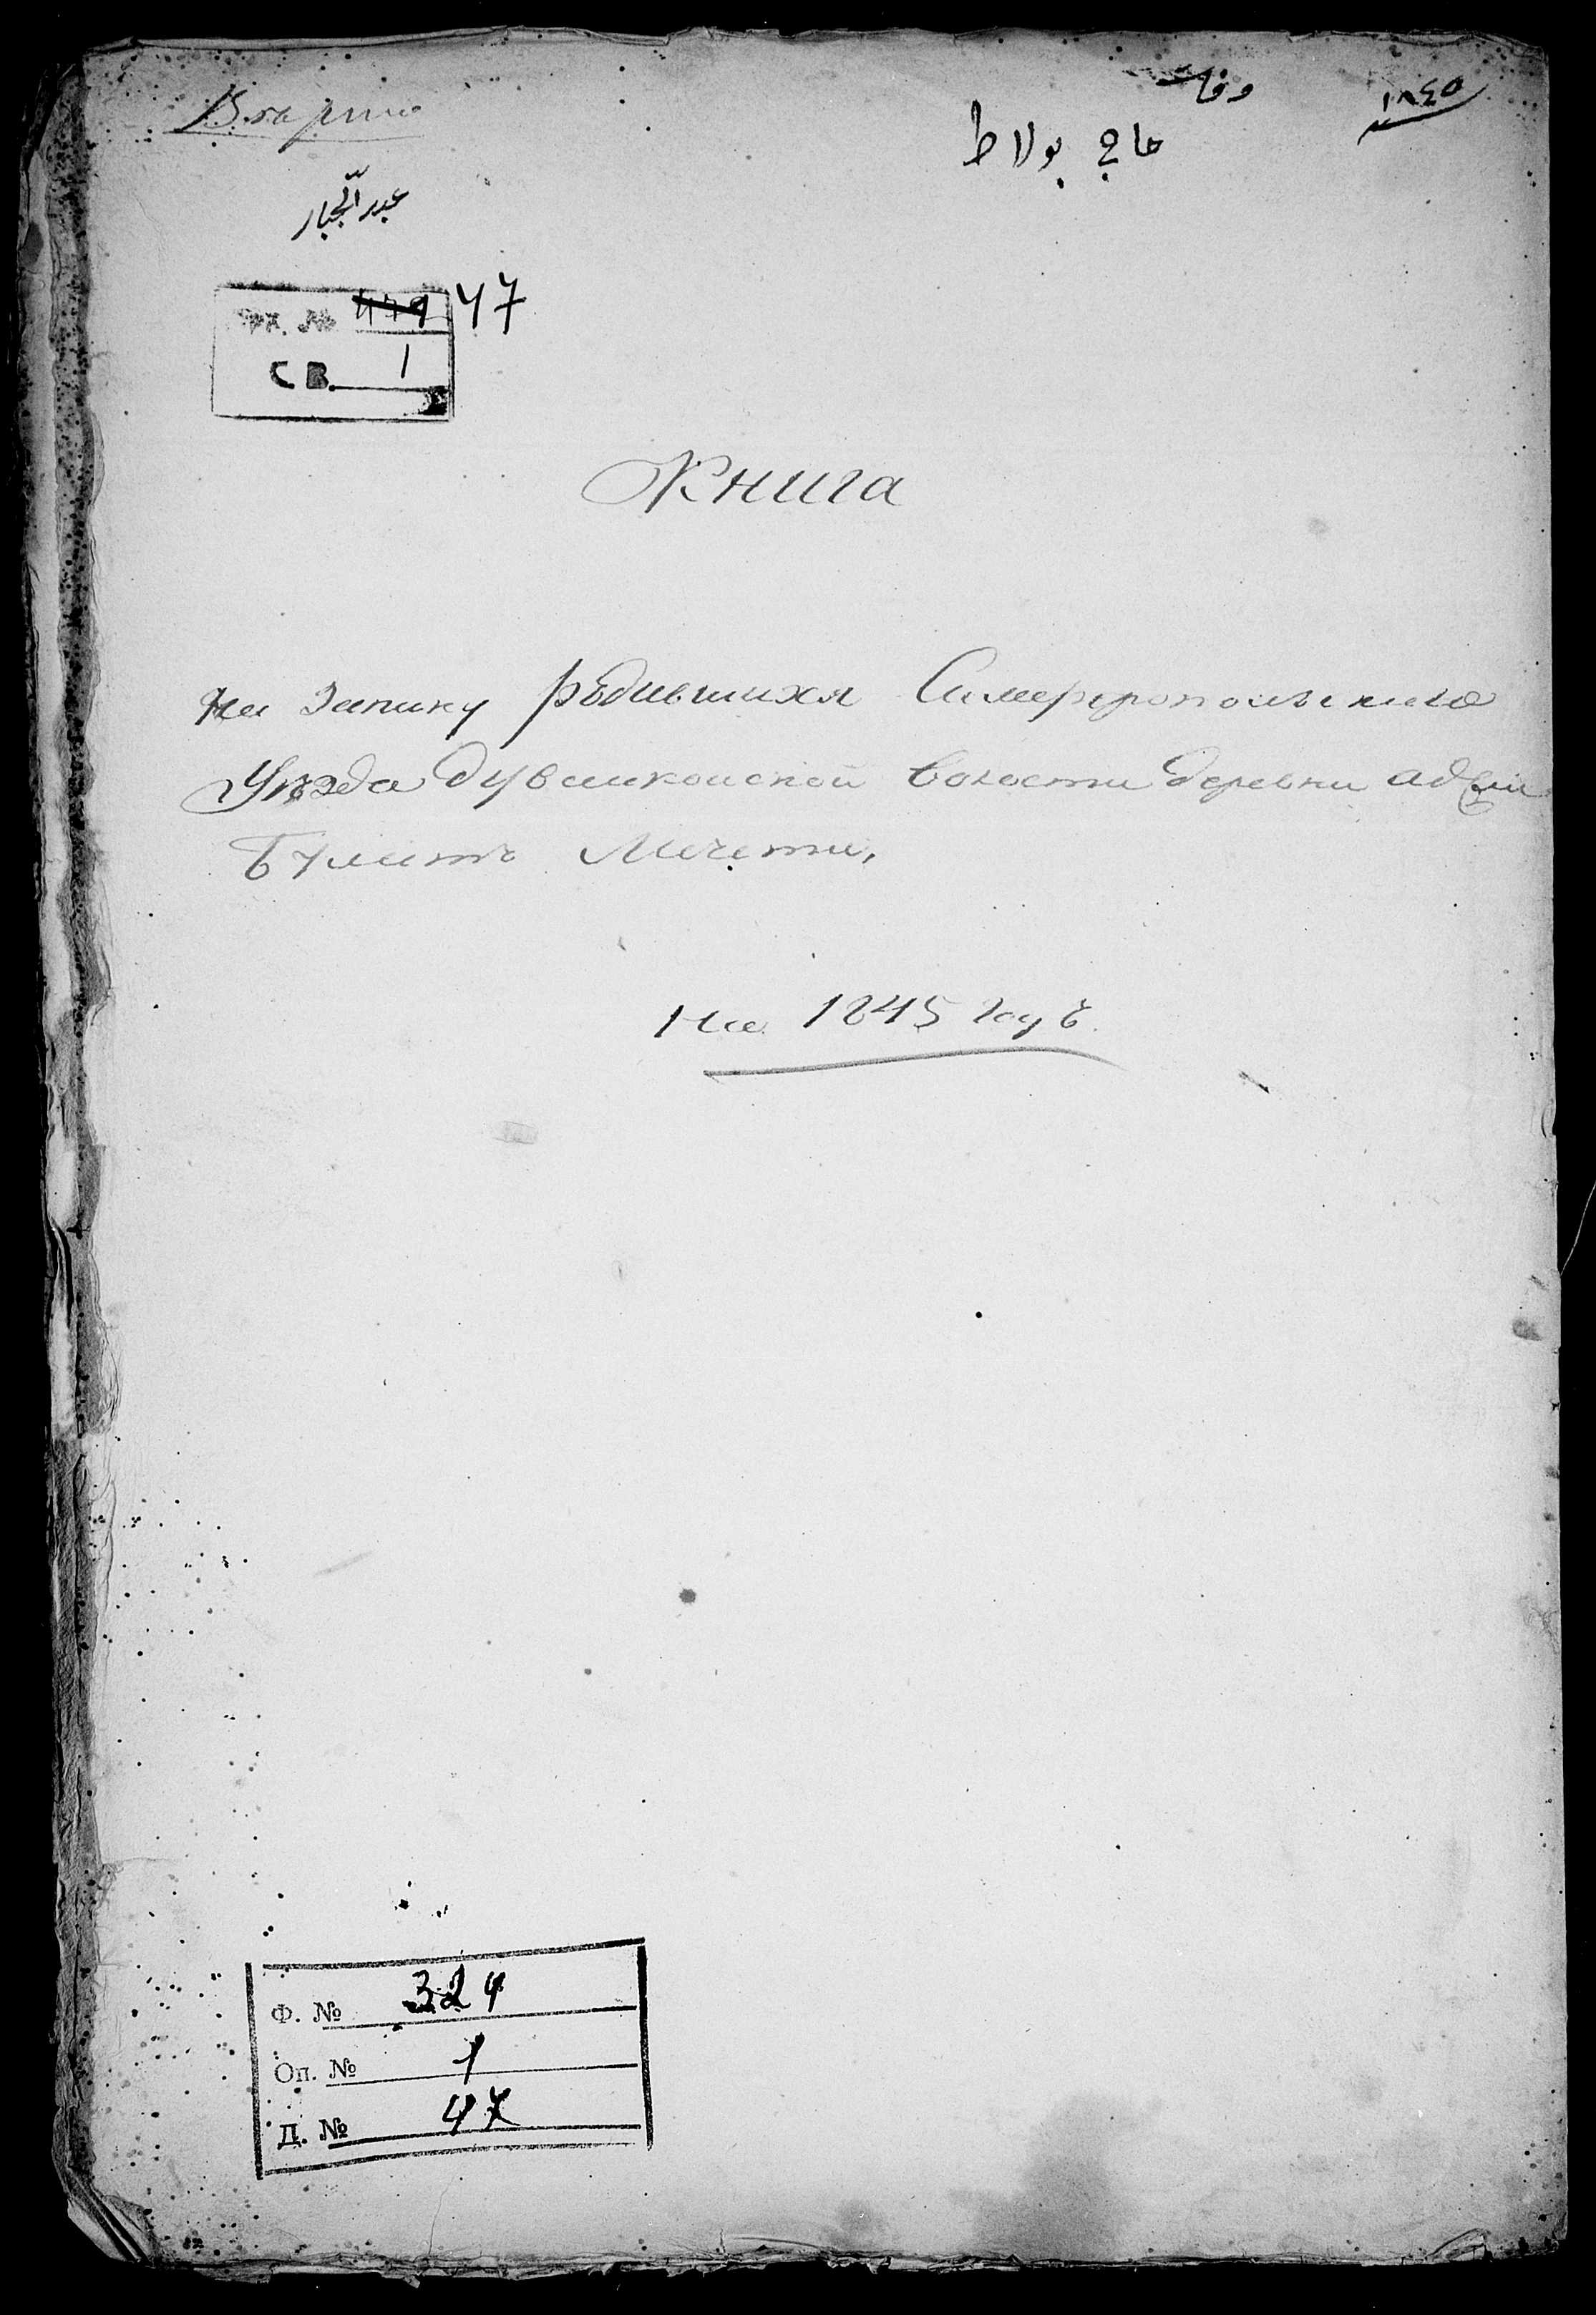 وفات ١٨٤٥
حاجي بولاط
عبد الجبار
47
С В. 1
Книга
На Записку Родившихся Симферопольскаго
Уезда Дуванкойской Волости деревни Аджи
Булатъ Мечети,
На 1845 годъ.
Ф. № 324
Оп. № 1
Д. № 47